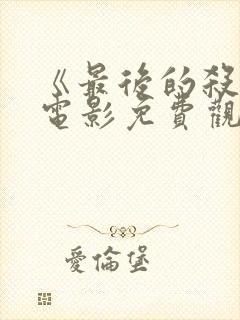 《最後的殺
電影免費觀
愛倫堡